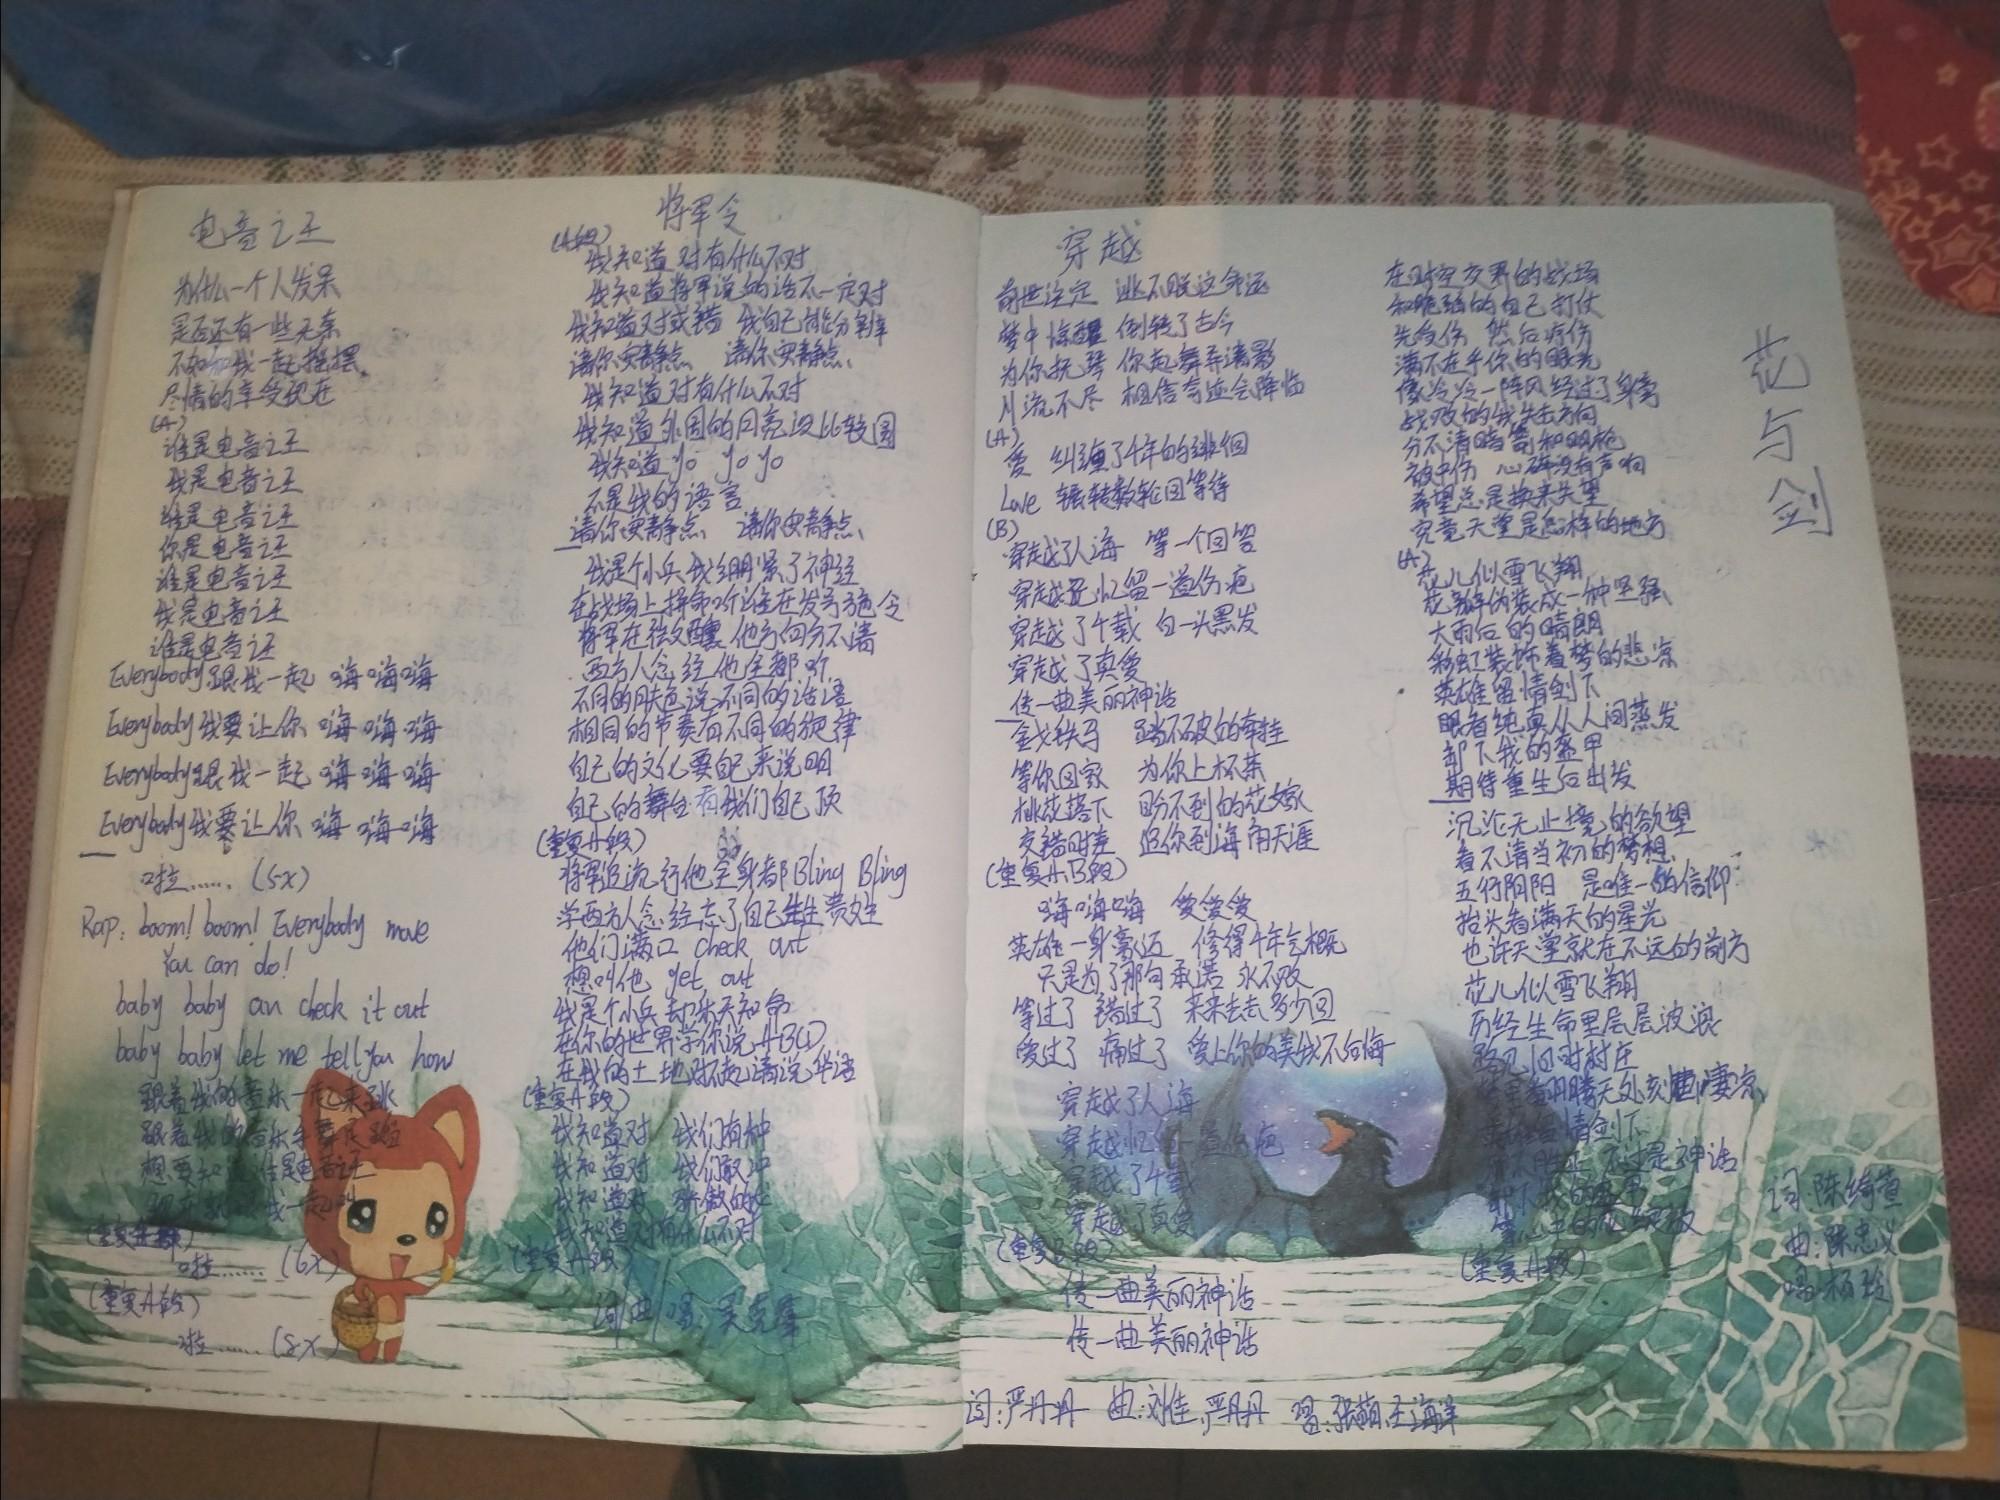 电音之王
为什么一个人发呆
是否还有一些无奈
不如和我一起摇摆
尽情的享受现在
(A)
谁是电音之王
我是电音之王
谁是电音之王
你是电音之王
谁是电音之王
我是电音之王
谁是电音之王
Everybody跟我一起 嗨嗨嗨
Everybody我要让你 嗨嗨嗨
Everybody跟我一起 嗨嗨嗨
Everybody我要让你 嗨嗨嗨
啦…… (5x)
Rap: boom! boom! Everybody move
You can do!
baby baby can check it out
baby baby let me tell you how
跟着我的音乐一起来跳
跟着我的音乐手舞足蹈
想要知道谁是电音之王
我一起叫
啦…… (6x)
(重复A段)
啦…… (5x)
将军令
(A段)
我知道 对有什么不对
我知道将军说的话不一定对
我知道对或错 我自己能分辨
请你安静点 请你安静点
我知道对有什么不对
我知道外国的月亮没比较圆
我知道 yo yo yo
不是我的语言
请你安静点 请你安静点
我是个小兵 我绷紧了神经
在战场上拼命 听谁在发号施令
将军在强文醺 他分们分不清
西方人念经他全都听
不同的肤色说不同的话语
相同的节奏有不同的旋律
自己的文化要自己来说明
自己的舞台有我们自己顶
(重复A段)
将军追流行他全身都Bling Bling
学西方人念经忘了自己先生贵姓
他们满口 check out
想叫他 get out
我是个小兵 却乐天知命
在你的世界学你说ABCD
在我的土地对不起请说华语
(重复A段)
我知道对 我们有种
我知道对 我们敢冲
我知道对 骄傲的
我知道对有什么不对
(重复A段)
词/曲/唱: 吴克群
穿越
前世注定 逃不脱这命运
梦中惊醒 倒转了古今
为你抚琴 你起舞弄清影
川流不尽 相信奇迹会降临
(A)
爱 纠缠了千年的徘徊
Love 辗转数轮回等待
(B)
穿越了人海 等一个回答
穿越记忆留一道伤疤
穿越了千载 白一头黑发
穿越了真爱
传一曲美丽神话
金戈铁马 踏不破的牵挂
等你回家 为你上杯茶
桃花落下 盼不到的花嫁
交错时差 追你到海角天涯
(重复A.B段)
嗨嗨嗨 爱爱爱
英雄一身豪迈 修得千年气概
只是为了那句承诺 永不改
等过了 错过了 来来去去多少回
爱过了 痛过了 爱上你的美我不后悔
穿越了人海
穿越记忆留一道伤疤
穿越了千载
穿越了真爱
(重复B段)
传一曲美丽神话
传一曲美丽神话
词:严丹丹 曲:刘佳,严丹丹 唱:张萌,王海洋
花与剑
在时空交界的战场
和脆弱的自己打仗
先受伤 然后疗伤
满不在乎你的眼光
像冷冷一阵风经过了身旁
战败的我失去方向
分不清暗箭和明枪
被中伤 心碎没有声响
希望总是换来失望
究竟天堂是怎样的地方
(A)
花儿似雪飞翔
花瓣伪装成一种坚强
大雨后的晴朗
彩虹装饰着梦的悲凉
英雄留情剑下
眼看纯真从人间蒸发
卸下我的盔甲
期待重生后出发
沉沦无止境的欲望
看不清当初的梦想
五行阴阳 是唯一的信仰
抬头看满天的星光
也许天堂就在不远的前方
花儿似雪飞翔
历经生命里层层波浪
路见旧时村庄
情剑下
不过是神话
(重复A段)
词:陈绮萱
曲:陈忠义
唱:杨玲